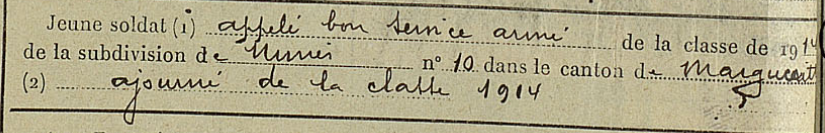 Jeune soldat (1) appelé bon service armé de la classe de 1914
de la subdivision de Nîmes n° 10 dans le canton de
(2) ajourné de la classe 1914